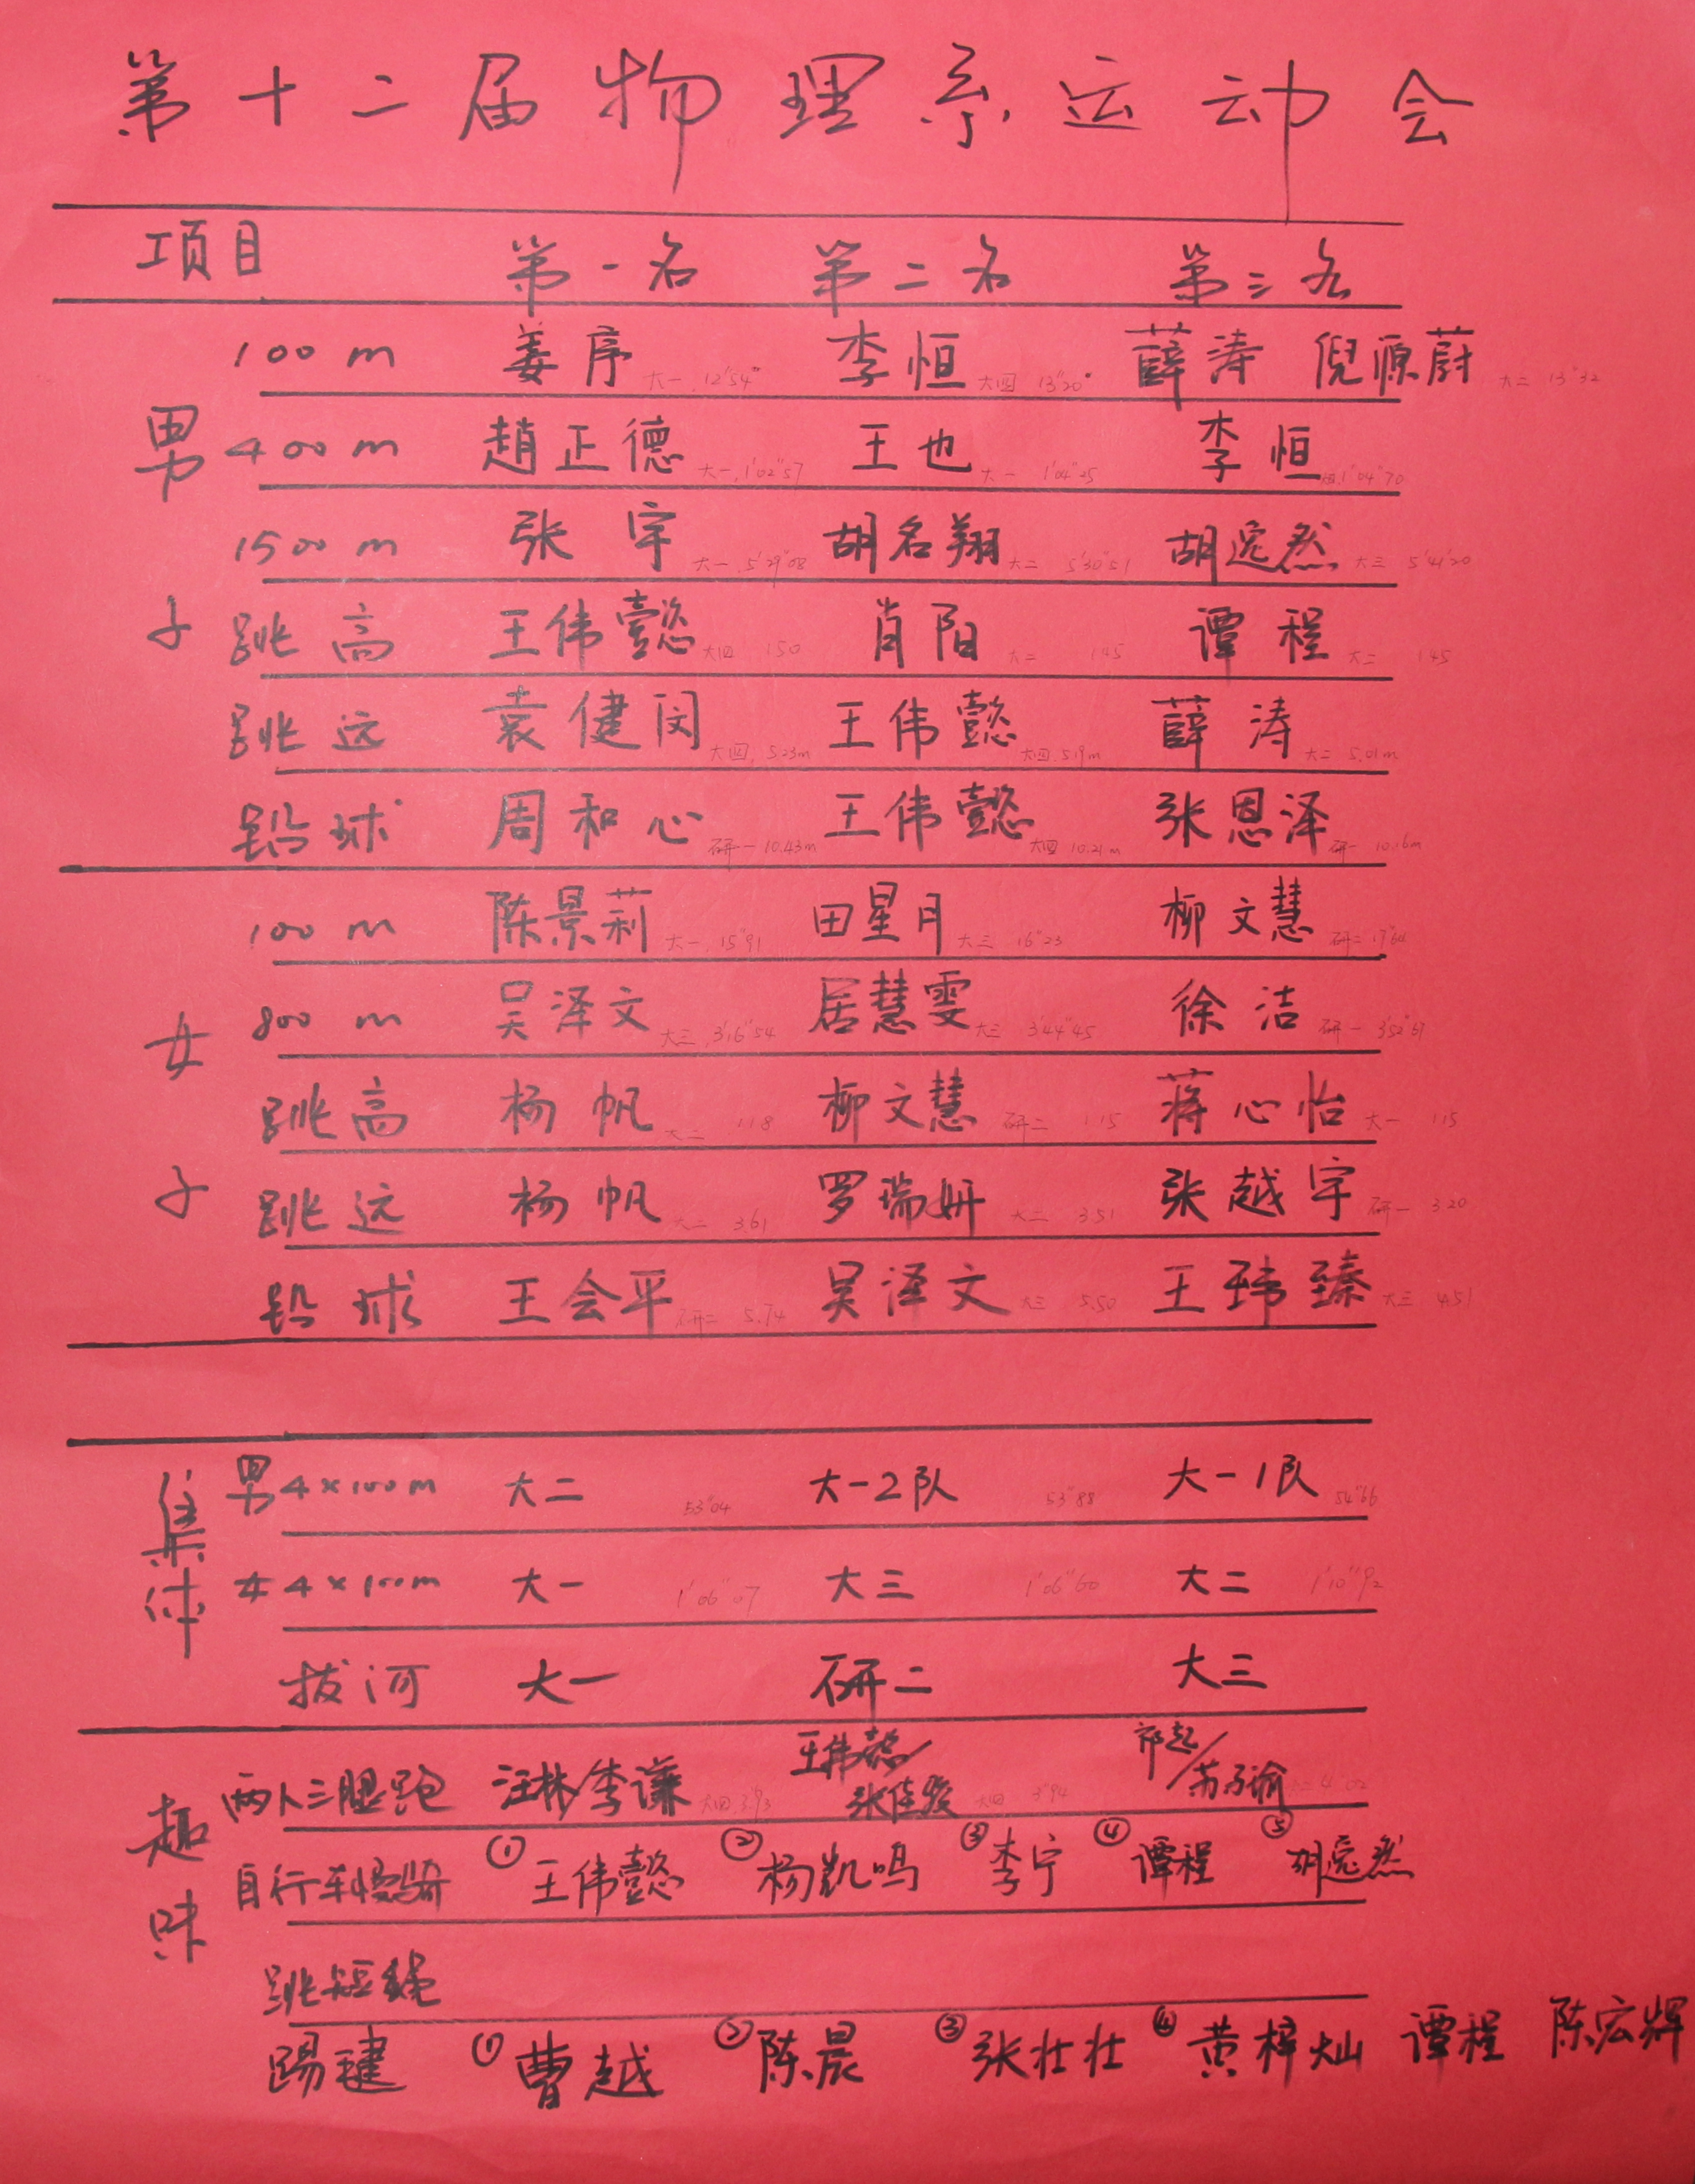 第十二届物理系运动会
项目 第一名 第二名 第三名
男子
100m 姜序 大一 12'54" 李恒 大四 13"20 薛涛 倪源蔚 大二 13"32
400m 趙正德 大一 1'02"57 王也 大一 1'04"25 李恒 1'04"70
1500m 张宇 大一 5'29"08 胡名翔 大二 5'30"51 胡逸然 大三 5'41"20
跳高 王伟懿 大四 150 肖阳 大二 145 谭程 大二 145
跳远 袁健闵 大四 5.23m 王伟懿 大四 5.19m 薛涛 大二 5.01m
铅球 周和心 研一 10.43m 王伟懿 大四 10.21m 张恩泽 研一 10.16m
女子
100m 陈景莉 大一 15"91 田星月 大三 16"23 柳文慧 研二 17"64
800m 吴泽文 大三 3'16"54 居慧雯 大三 3'44"45 徐洁 研一
跳高 杨帆 大二 118 柳文慧 研二 115 蒋心怡 大一 115
跳远 杨帆 大二 3.61 罗瑞妍 大二 3.51 张越宇 研一 3.20
铅球 王会平 研二 5.74 吴泽文 大三 5.50 王玮臻 大三 4.51
集体
男4×100m 大二 53"04 大一2队 53"88 大一1队 54"66
女4×100m 大一 1'06"07 大三 1'06"60 大二 1'10"92
拔河 大一 研二 大三
趣味
两人三腿跑 汪林/李谦 大四 3"93 王伟懿/张佳俊 大四 3"94 祁起/苏子谕 4"02
自行车慢骑 ①王伟懿 ②杨凯鸣 ③李宁 ④谭程 ⑤胡逸然
跳短绳
踢毽 ①曹越 ②陈晨 ③张壮壮 ④黄梓灿 谭程 陈宏辉